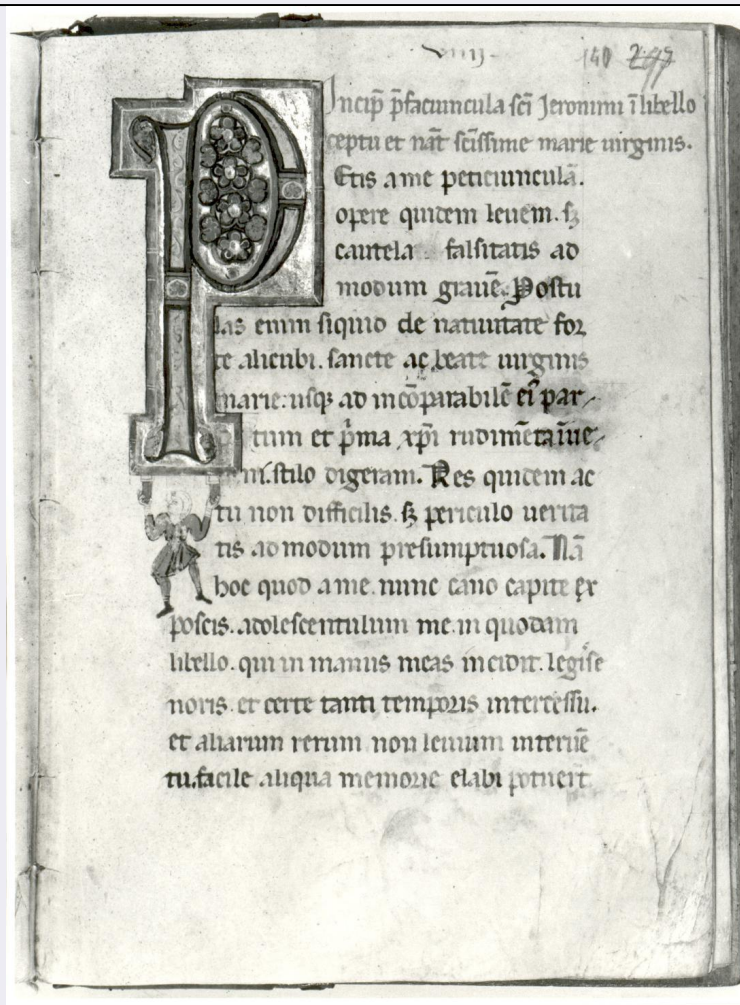 viiij.
140 297
Incip̄ p̄faciuncula sc̄i Jeronimi ī libello
ceptu et nāt sc̄issime marie uirginis.
P Etis a me peticiunculā.
opere quidem leuem. sꝫ
cautela falsitatis ad
modum grauē. Postu
las enim siquid de natiuitate foꝛ
te alicubi. sancte ac beate uirginis
marie. usqꝫ ad incōparabilē eiꝰ par-
tum et p̄ma xp̄i rudimēta īue-
ni. stilo digeram. Res quidem ac
tu non difficilis. sꝫ periculo uerita
tis admodum presumptuosa. Nā
hoc quod a me. nunc cano capite ex
poscis. adolescentulum me. in quodam
libello. qui in manus meas incidit. legisse
noris. et certe tanti tempoꝛis intercessu.
et aliarum rerum non leuium interuē
tu. facile aliqua memorie elabi potuert̄